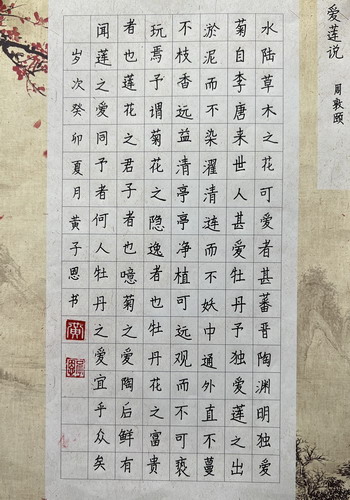 爱莲说
周敦颐
水陆草木之花可爱者甚蕃晋陶渊明独爱
菊自李唐来世人甚爱牡丹予独爱莲之出
淤泥而不染濯清涟而不妖中通外直不蔓
不枝香远益清亭亭净植可远观而不可亵
玩焉予谓菊花之隐逸者也牡丹花之富贵
者也莲花之君子者也噫菊之爱陶后鲜有
闻莲之爱同予者何人牡丹之爱宜乎众矣
岁次癸卯夏月黄子恩书
黄